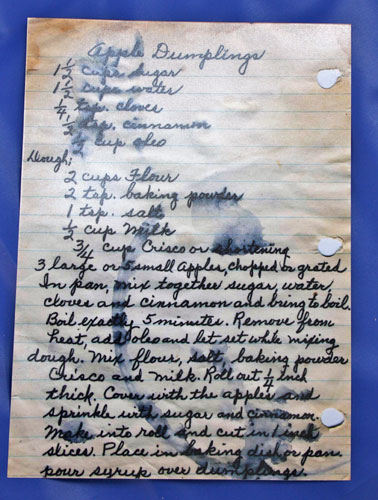 Apple Dumplings
1 1/2 cups sugar
1 1/2 cups water
1/4 tsp. cloves
1/2 tsp. cinnamon
cup oleo
Dough:
2 cups Flour
2 tsp. baking powder
1 tsp. salt
1/2 cup Milk
3/4 cup Crisco or shortening
3 large or 5 small Apples, chopped or grated
In pan, mix together sugar, water,
cloves and cinnamon and bring to boil.
Boil exactly 5 minutes. Remove from
heat, add oleo and let set while mixing
dough. Mix flour, salt, baking powder
Crisco and milk. Roll out 1/4 inch
thick. Cover with the apples and
sprinkle with sugar and cinnamon.
Make into roll and cut in 1 inch
slices. Place in baking dish or pan.
pour syrup over dumplings.